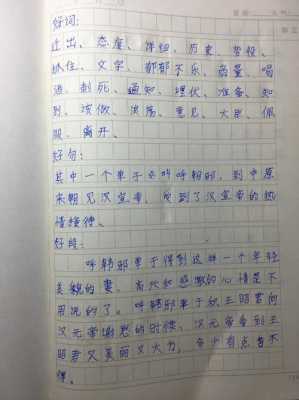 好词:
让出、态度、详细、历来、曾经、
抓住、文字、郁郁不乐、商量、喝
酒、刺死、通知、埋伏、准备、知
到、读做、流荡、意见、大臣、佩
服、离开、
好句:
其中一个单于名叫呼韩邪,到中原
来朝见汉宣帝,受到了汉宣帝的热
情接待。
好段:
呼韩邪单于得到这样一个年轻
美貌的妻,高兴和感激的心情是不
用说的了。呼韩邪单于放王昭君向
汉元帝谢恩的时候,汉元帝看到王
昭君又美丽又大方,多少有点舍不
得。